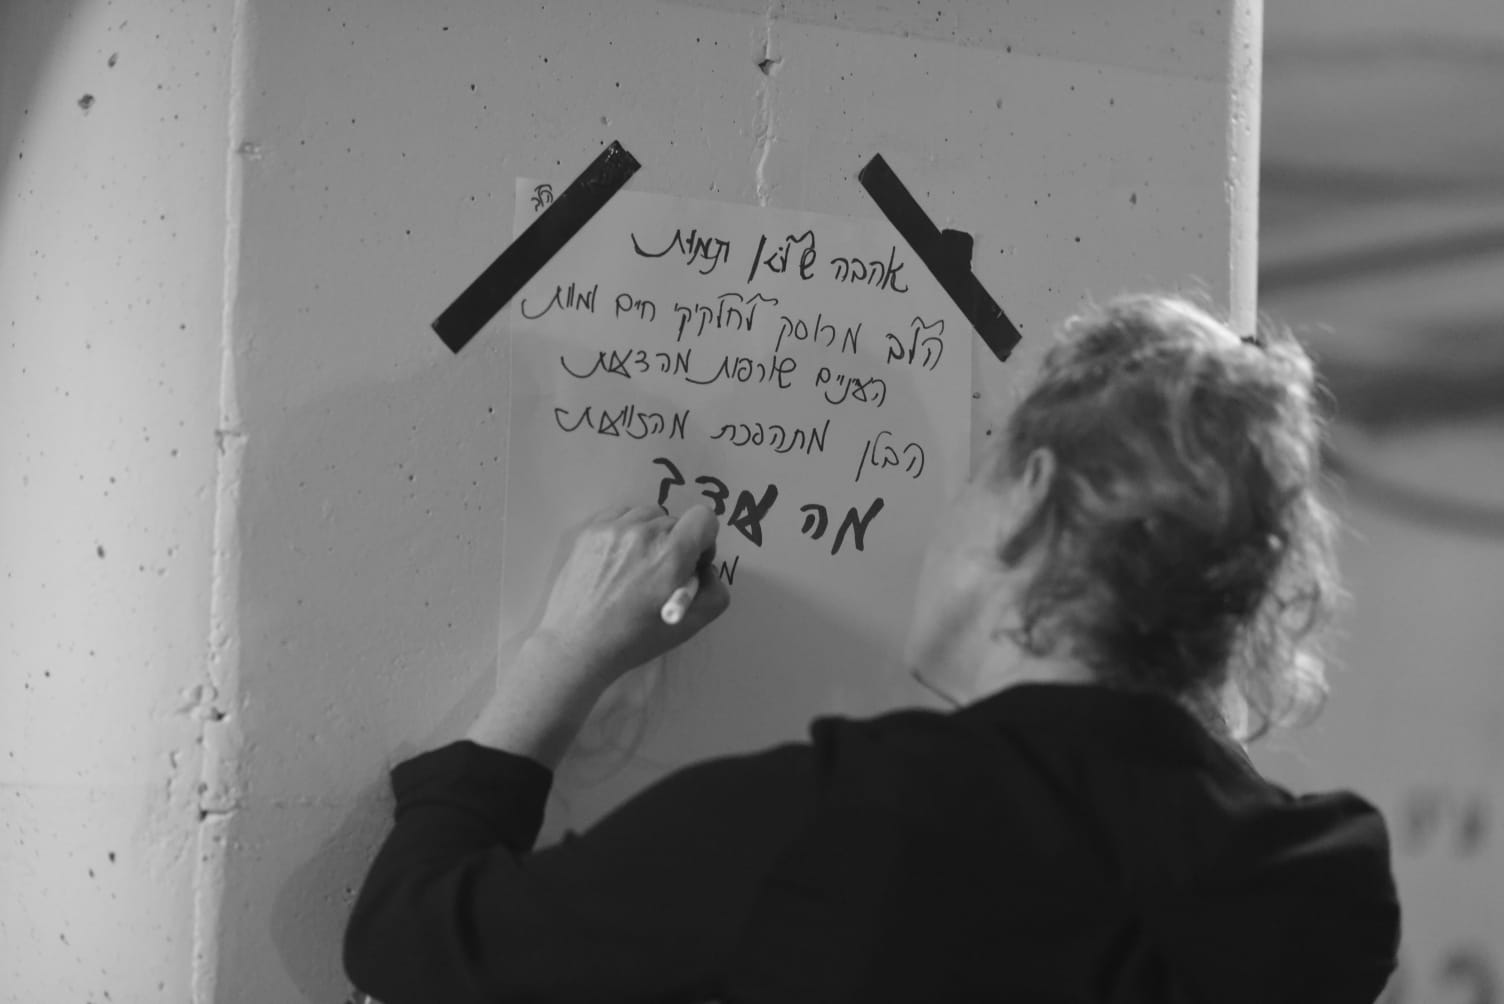 אהבה שלא תמות
הלב מרוסק לחלקיקי חיים ומוות
העיניים שורפות מהדמעות
הבטן מתהפכת מהזוועות
מה עוד?